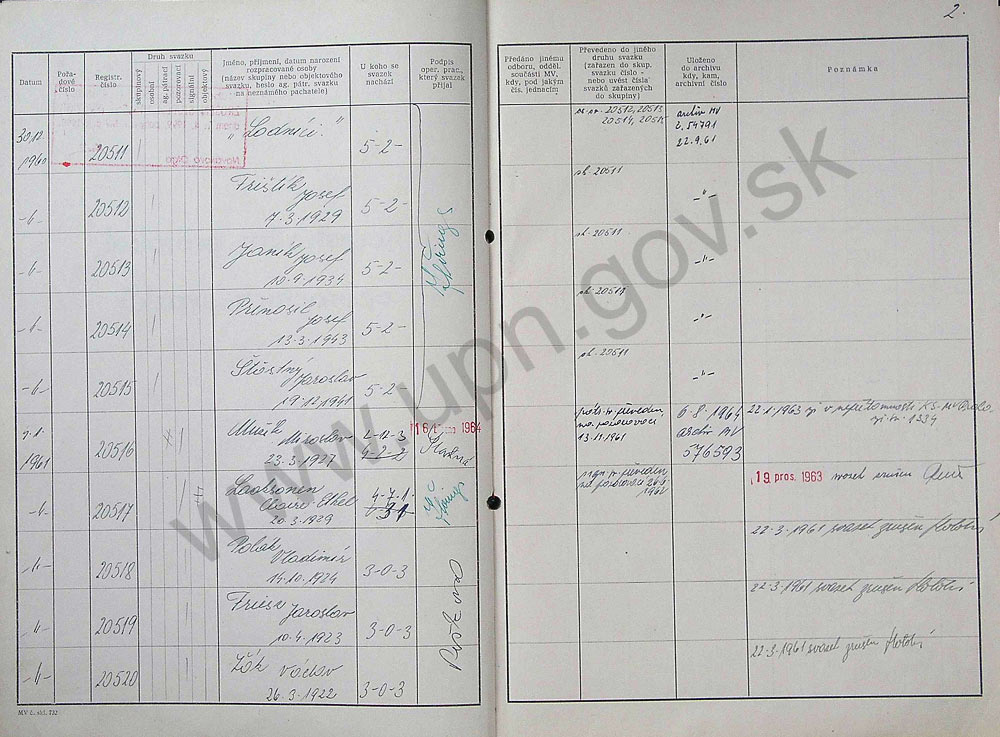 2.
Datum
Pořa-
dové
číslo
Registr.
číslo
Druh svazku
skupinový
osobní
ag. pátrací
pozorovací
signální
objektový
Jméno, příjmení, datum narození
rozpracované osoby
(název skupiny nebo objektového
svazku, heslo ag. pátr. svazku
na neznámého pachatele)
U koho se
svazek
nachází
Podpis
oper. prac.,
který svazek
přijal
Předáno jinému
odboru, odděl.
součásti MV,
kdy, pod jakým
čís. jednacím
Převedeno do jiného
druhu svazku
(zařazen do skup.
svazku číslo -
nebo uvést čísla
svazků zařazených
do skupiny)
Uloženo
do archivu
kdy, kam,
archivní číslo
Poznámka
30.12.
1960
20511
"Lodníci"
5-2-
20512, 20513
20514, 20515
archiv MV
č. 54791
22.9.61
-"-
20512
Trištík
Josef
7.3.1929
5-2-
sk. 20511
-"-
-"-
20513
Janík Josef
10.9.1934
5-2-
sk. 20511
-"-
-"-
20514
Přinosil
Josef
13.3.1943
5-2-
sk. 20511
-"-
-"-
20515
Štěstný
Jaroslav
19.12.1941
5-2-
sk. 20511
-"-
9.1.
1961
20516
Miroslav
23.3.1927
4-2-2
16 1964
převeden
na pozorovací
13.11.1961
6.8.1964
archiv MV
576593
22.1.1963
-"-
20517
20.3.1929
4-7-1
převeden
na pozorovací
1962
19. pros. 1963 svazek zrušen
-"-
20518
Polák
Vladimír
14.10.1924
3-0-3
22.3.1961 svazek zrušen
-"-
20519
Jaroslav
10.4.1923
3-0-3
22.3.1961 svazek zrušen
-"-
20520
Žák Václav
26.3.1922
3-0-3
22.3.1961 svazek zrušen
MV č. skl. 732
www.upn.gov.sk